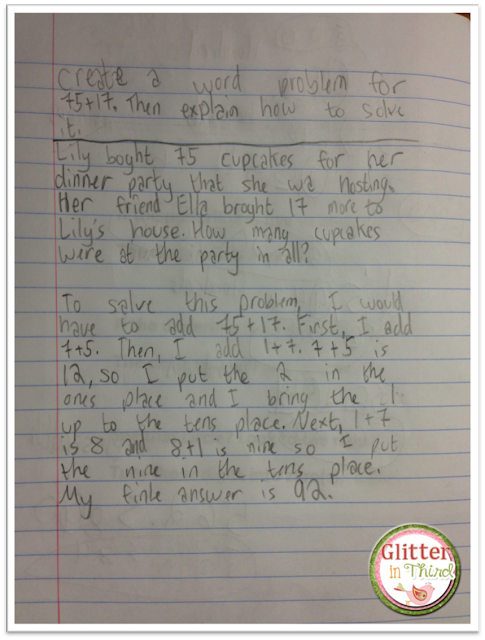 create a word problem for
75+17. Then explain how to solve
it.
Lily boght 75 cupcakes for her
dinner party that she wa hosting.
Her friend Ella broght 17 more to
Lily's house. How many cupcakes
were at the party in all?
To solve this problem, I would
have to add 75+17. First, I add
7+5. Then, I add 1+7. 7+5 is
12, so I put the 2 in the
ones place and I bring the 1
up to the tens place. Next, 1+7
is 8 and 8+1 is nine so I put
the nine in the tens place.
My finle answer is 92.
Glitter
in Third